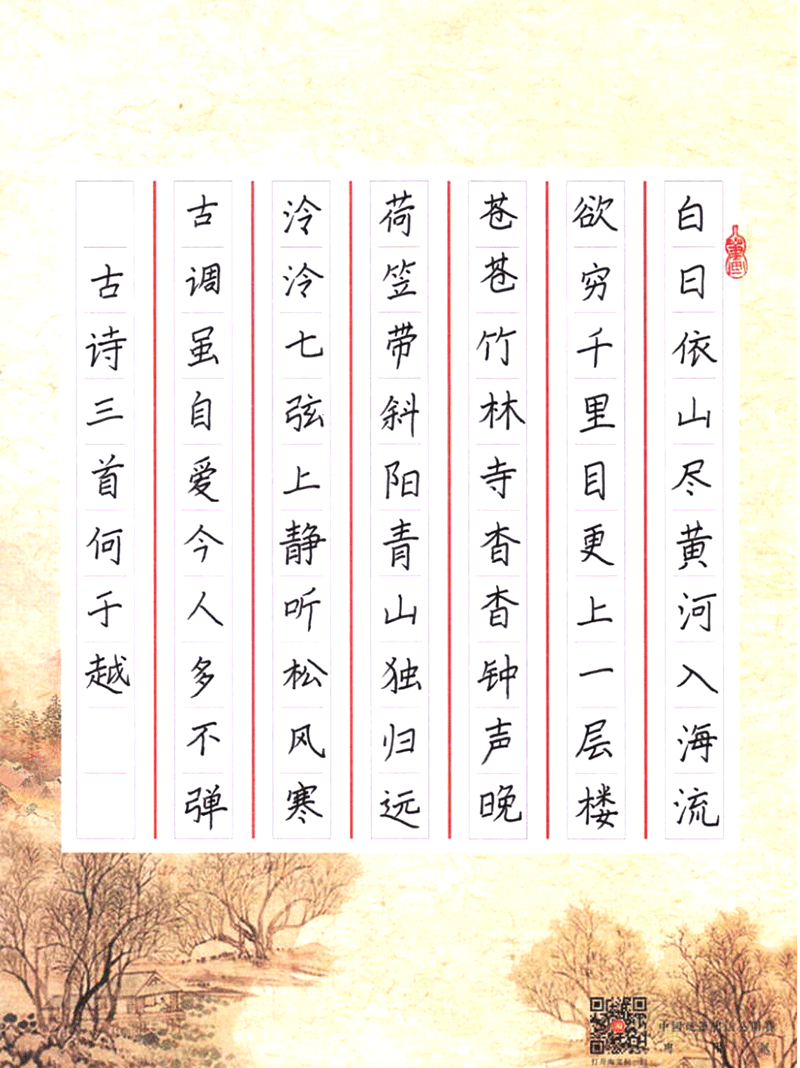 白日依山尽黄河入海流
欲穷千里目更上一层楼
苍苍竹林寺杳杳钟声晚
荷笠带斜阳青山独归远
泠泠七弦上静听松风寒
古调虽自爱今人多不弹
古诗三首何于越